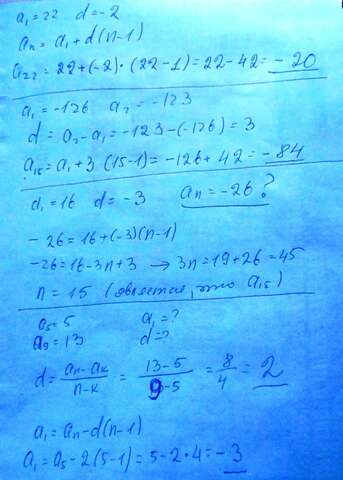 a₁=22 d=-2
aₙ=a₁+d(n-1)
a₂₂=22+(-2)·(22-1)=22-42=-20
a₁=-126 a₂=-123
d=a₂-a₁=-123-(-126)=3
a₁₅=a₁+3(15-1)=-126+42=-84
d₁=16 d=-3 aₙ=-26?
-26=16+(-3)(n-1)
-26=16-3n+3 → 3n=19+26=45
n=15 (является, это a₁₅)
a₅=5 a₁=?
a₉=13 d=?
d=(aₙ-aₖ)/(n-k)=(13-5)/(9-5)=8/4=2
a₁=aₙ-d(n-1)
a₁=a₅-2(5-1)=5-2·4=-3